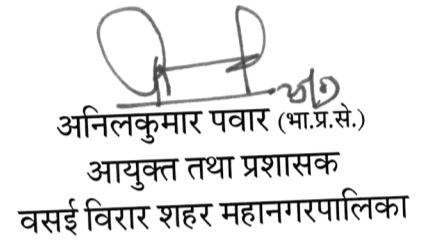 अनिलकुमार पवार (भा.प्र.से.)
आयुक्त तथा प्रशासक
वसई विरार शहर महानगरपालिका